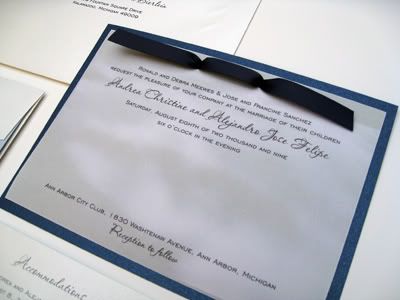 Fountain Square Drive
Kalamazoo, Michigan 49009
Ronald and Debra Meewes & Jose and Francine Sanchez
request the pleasure of your company at the marriage of their children
Andrea Christine and Alejandro Jose Felipe
Saturday, August eighth of two thousand and nine
six o'clock in the evening
Ann Arbor City Club, 1830 Washtenaw Avenue, Ann Arbor, Michigan
Reception to follow
Accommodations